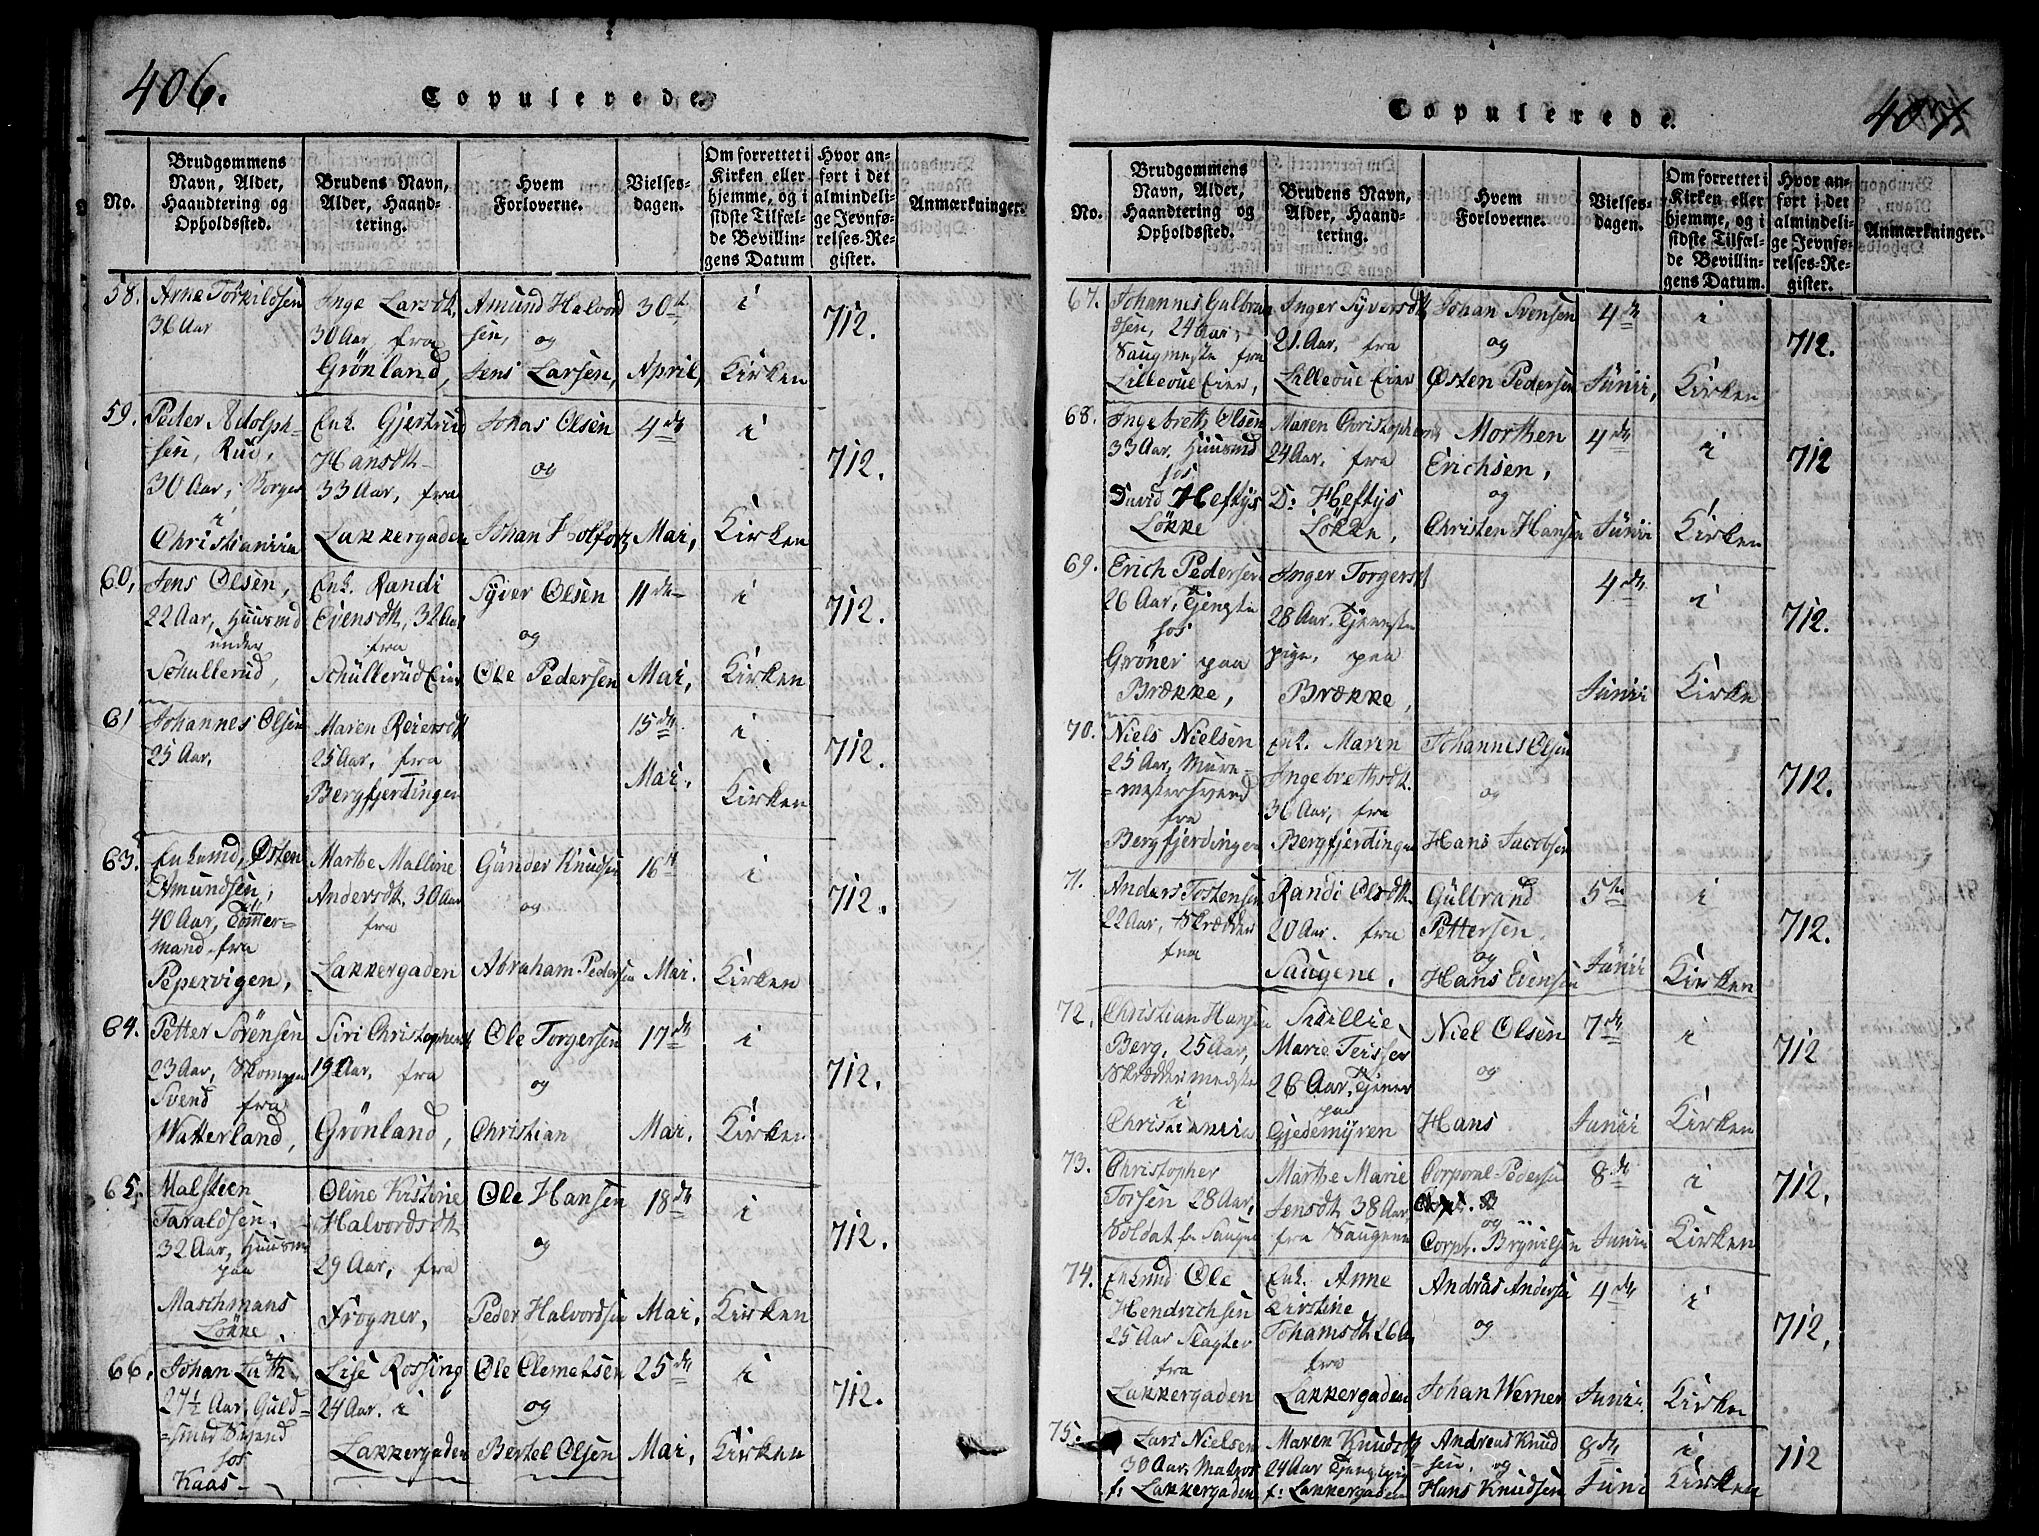 406.
Copulerede.
No.
Brudgommens Navn, Alder, Haandtering og Opholdssted.
Brudens Navn, Alder, Haandtering.
Hvem Forloverne.
Vielses-dagen.
Om forrettet i Kirken eller hjemme, og i sidste Tilfælde Bevillingens Datum
Hvor anført i det almindelige Jevnførelses-Register.
Anmærkninger.
58. Arne Torkildsen 36 Aar
Inge Larsdt, 30 Aar, fra Grönland,
Amund Halvordsen, og Jens Larsen,
30te April,
i Kirken
712.
59. Peder Adolphsen, Rud, 30 Aar, Borger i Christiania
Enk. Gjertrud Hansdt 33 Aar, fra Lakkergaden
Johas Olsen og Johan Holfortz
4de Mai,
i Kirken
712.
60, Jens Olsen, 22 Aar, Huusmd under Schullerud,
Enk. Randi Evensdt, 32 Aar fra Schüllerud Eier
Syver Olsen og Ole Pedersen
11de Mai,
i Kirken
712.
61 Johannes Olsen 25 Aar,
Maren Reiersdt 25 Aar, fra Bergfjerdingen
15de Mai.
i Kirken
712.
63. Enkemd, Østen Amundsen, 40 Aar, Tömmermand fra Pepervigen,
Marthe Malline Andersdt, 30 Aar fra Lakkergaden
Gunder Knudsen og Abraham Pedersen
16de Mai.
i Kirken
712.
64. Petter Sörensen 23 Aar, Skomager Svend fra Watterland,
Siri Christophersdt 19 Aar, fra Grönland,
Ole Torgersen og Christian
17de Mai.
i Kirken
712.
65. Malsteen Taraldsen, 32 Aar, Huusmd paa Maschmans Lökke,
Oline Kistine Halvordsdt 29 Aar, fra Frogner,
Ole Hansen og Peder Halvordsen
18de Mai,
i Kirken
712.
66. Johan Luth, 27½ Aar, Guldsmed Svend hos Kaas
Lise Rossing 24 Aar. i Lakkergaden
Ole Clemetsen og Bertel Olsen
25de Mai,
i Kirken
712.
407.
Copulerede.
No.
Brudgommens Navn, Alder, Haandtering og Opholdssted.
Brudens Navn, Alder, Haandtering.
Hvem Forloverne.
Vielses-dagen.
Om forrettet i Kirken eller hjemme, og i sidste Tilfælde Bevillingens Datum.
Hvor anført i det almindelige Jevnførelses-Register.
Anmærkninger.
67. Johannes Gulbrandsen, 24 Aar, Saugmester fra Lilleoue Eier,
Inger Syversdt, 21. Aar, fra Lilleoue Eier
Johan Svensen og Østen Pedersen
4de Junii,
i Kirken
712.
68. Ingebreth Olsen 33 Aar, Huusmd hos David Heftijs Løkke
Maren Christophersdt, 24 Aar, fra D: Heftijs Løkke,
Morthen Erichsen, og Christen Hansen
4de Junii
i Kirken
712
69. Erich Pedersen 26 Aar, Tjeneste hos Gröner paa Brække,
Inger Torgersdt 28 Aar. Tjeneste pige, paa Brække,
4de Junii
i Kirken
712.
70. Niels Nielsen 25 Aar, Muremestersvend fra Bergfjerdingen
Enk. Maren Ingebrethsdt. 36 Aar, fra Bergfjerdingen
Johannes Olsen og Hans Jacobsen
712.
71. Anders Tostensen 22 Aar, Skrædder fra
Randi Olsdt 20 Aar. fra Saugene,
Gulbrand Pettersen, og Hans Evensen
5te Junii
i Kirken
712.
72. Christian Hansen Berg, 25 Aar, Skreddermester i Christiania
Marie Teisser 26 Aar, Tjener paa Gjedemyren
Niel Olsen og Hans
7de Junii
i Kirken
712
73. Christopher Torsen 28 Aar, Soldat fr Saugene
Marthe Marie Jensdt 38 Aar, fra Saugene
Corporal Pedersen og Corpl. Brynilsen
8de Junii
i Kirken
712.
74. Enkemd Ole Hendrichsen 25 Aar Slagter fra Lakkergaden
Enk. Anne Kirstine Johansdt 26 Aar fra Lakkergaden
Andras Andersen og Johan Werner
4de Junii.
i Kirken
712,
75. Lars Nielsen 30 Aar, Matros f: Lakkergaden
Maren Knudsdt 24 Aar Tjenestepige f: Lakkergaden
Andreas Knudsen, og Hans Knudsen
8de Juni
i Kirken
712